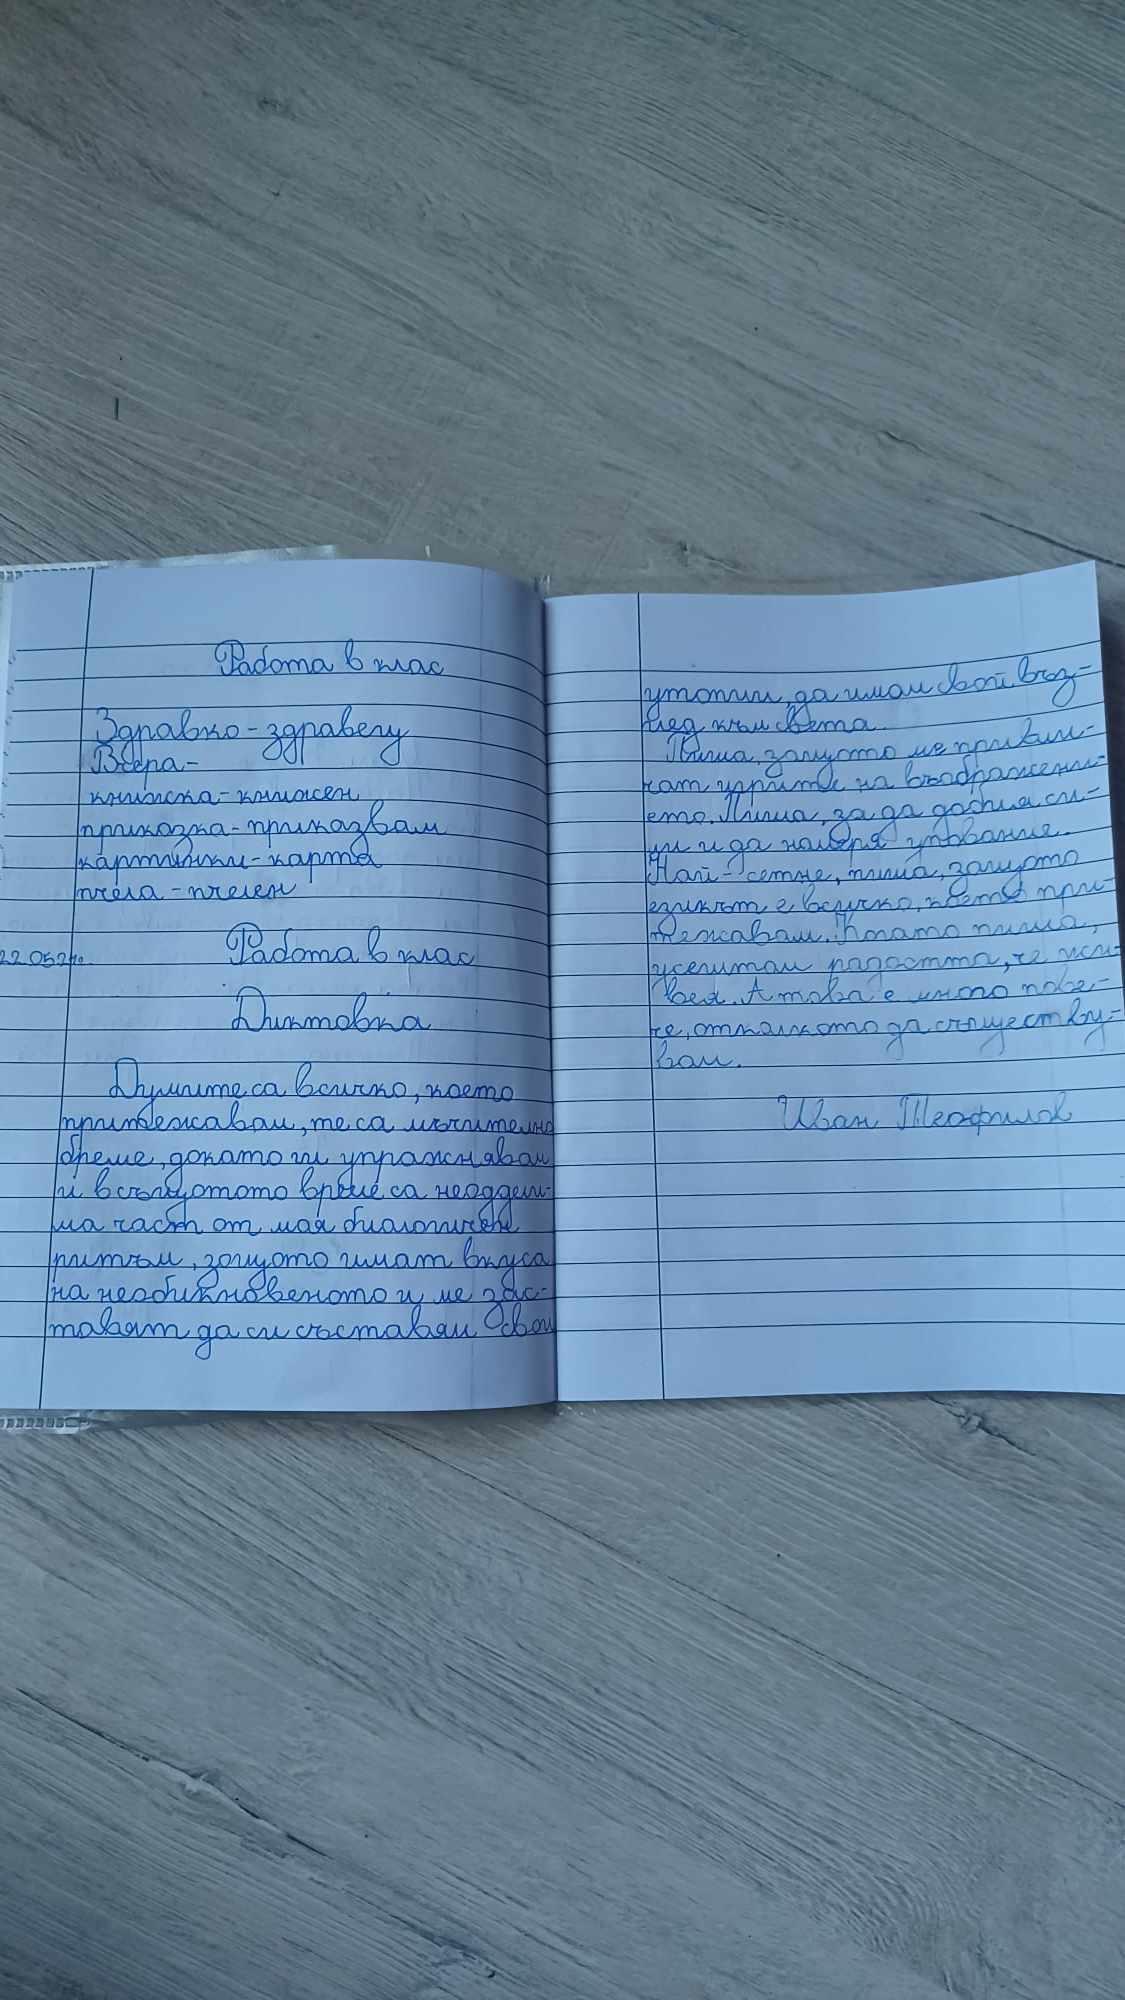 Работа в клас
Здравко-здравец
Вчера-
книжка-книжен
приказка-приказвам
картинки-карта
пчела-пчелен
22.05.24г.
Работа в клас
Диктовка
Думите са всичко, което
притежавам, те са мъчително
бреме, докато ги упражнявам
и в същотото време са неоддели-
ма част от моя биологичен
ритъм, защото имат вкуса
на необикновеното и ме зас-
тавят да си съставям свои
утопии, да имам свой въз-
глед към света.
Пиша, защото ме привли-
чат игрите на въображени-
ето. Пиша, за да добия си-
ли и да намеря упование.
Най-сетне, пиша, защото
езикът е всичко, което при-
тежавам. Когато пиша,
усещам радостта, че жи-
вея. А това е много пове-
че, отколкото да съществу-
вам.
Иван Теофилов